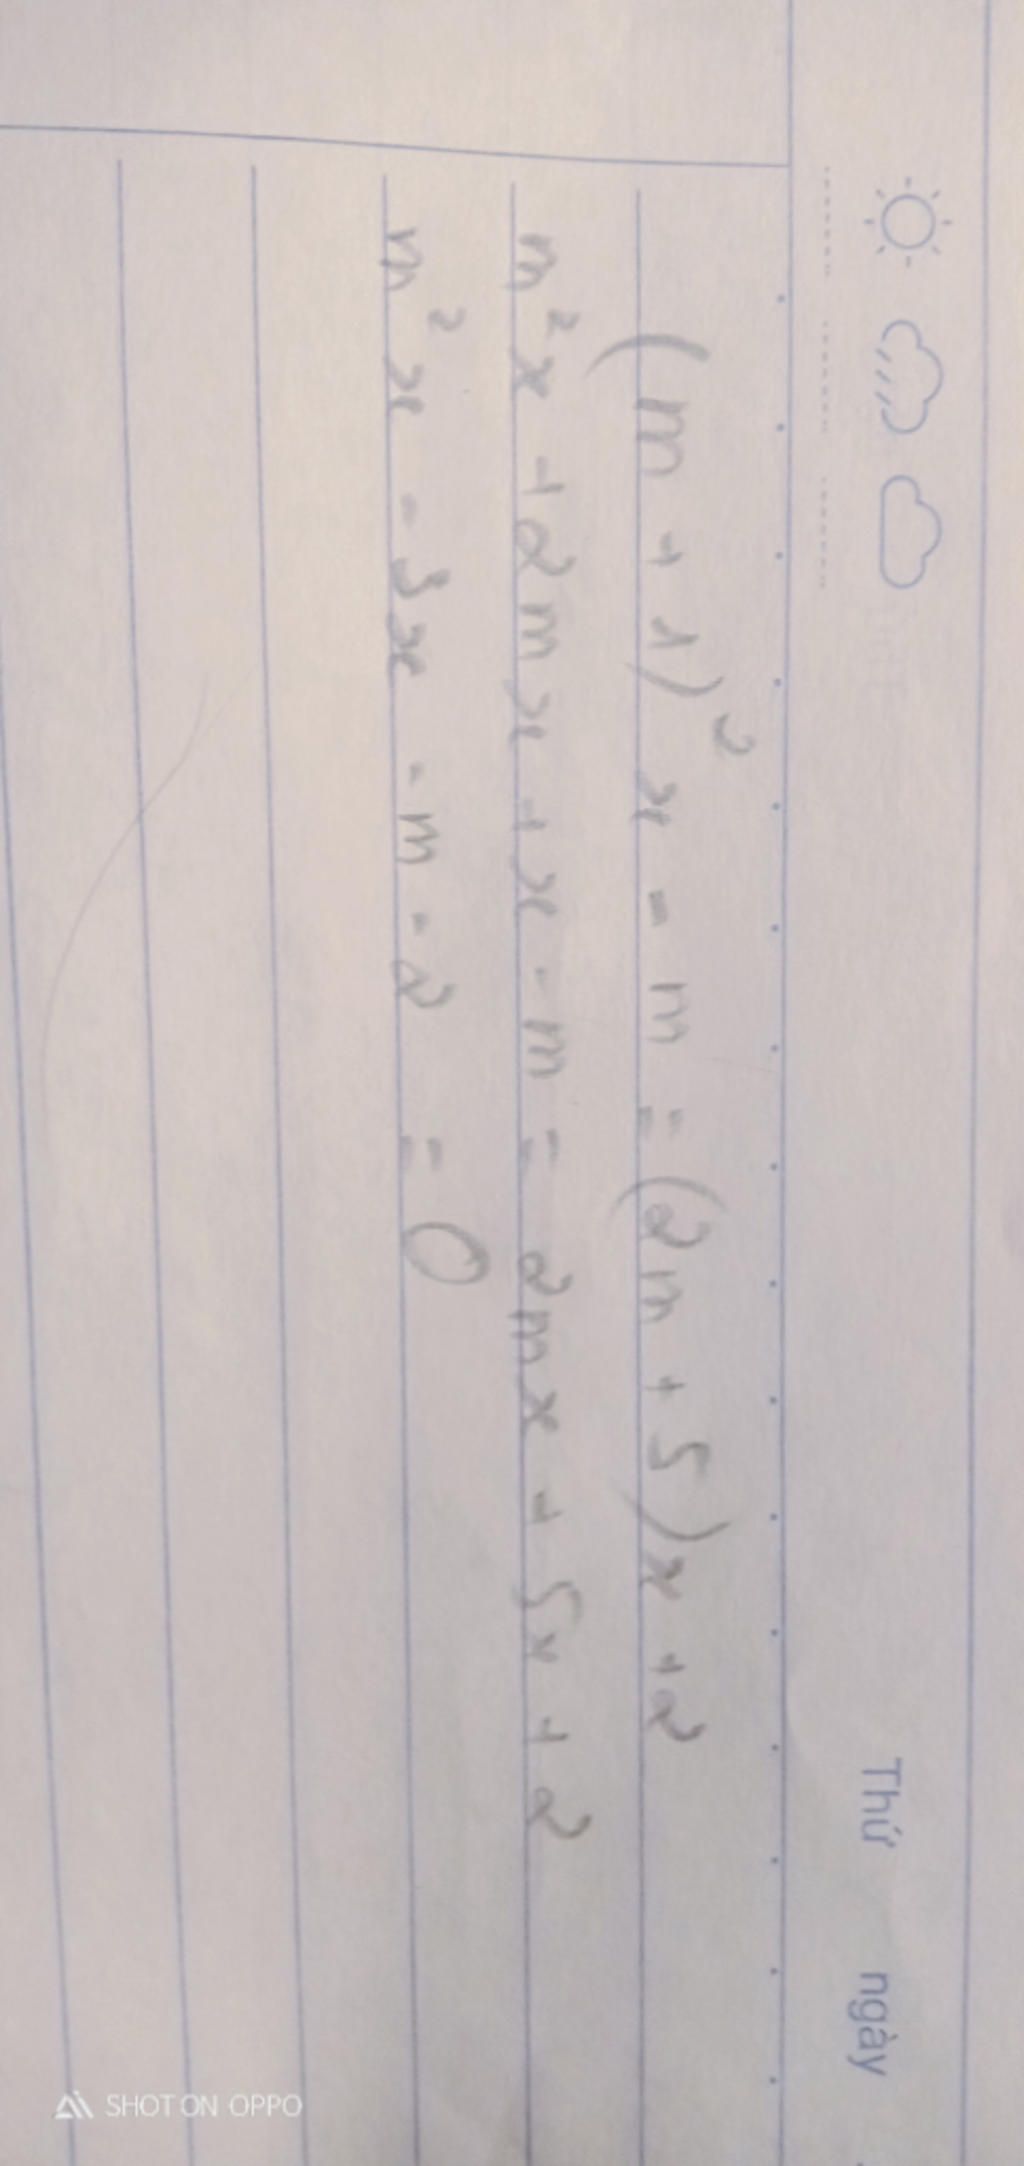 Thứ ngày
(m + 1)² x - m = (2m + 5)x + 2
m²x + 2mx + x - m = 2mx + 5x + 2
m²x - 3x - m - 2 = 0
SHOT ON OPPO